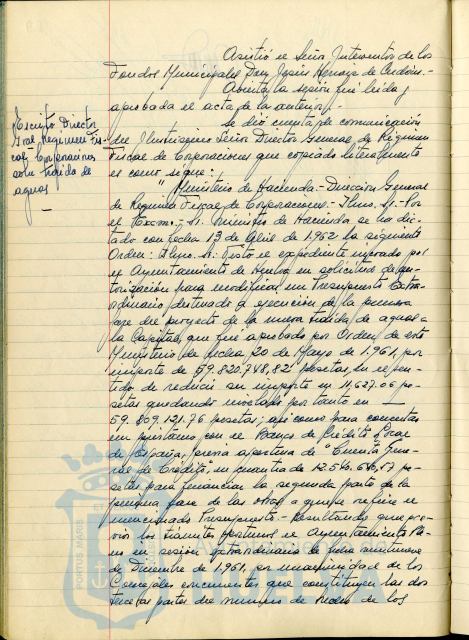 Asistió el Señor Interventor de los
Fondos Municipales Don Jesús Hernáiz de
Abierta la sesión fué leida y
aprobada el acta de la anterior.-
Se dió cuenta de comunicación
Escrito Director
Gral Regimen Fis-
cal Corporaciones
sobre traida de
aguas
del Ilustrísimo Señor Director General de Régimen
Fiscal de Corporaciones que copiado literalmente
es como sigue:
"Ministerio de Hacienda.- Dirección General
de Regimen Fiscal de Corporaciones.- Ilmo. Sr.- Por
el Excmo.- Sr. Ministro de Hacienda se ha dic-
tado con fecha 13 de Abril de 1.962 la siguiente
Orden: Ilmo. Sr. Visto el expediente incoado por
el Ayuntamiento de Huelva en solicitud de au-
torización para modificar un Presupuesto Extra-
ordinario destinado a ejecución de la primera
fase del proyecto de la nueva traida de aguas a
la Capital, que fué aprobado por Orden de este
Ministerio de fecha 20 de Mayo de 1.961, por
importe de 59.820.748,82 pesetas, en el sen-
tido de reducir su importe en 11.627.06 pe-
setas quedando nivelado por tanto en
59.809.121.76 pesetas; así como para concertar
un préstamo con el Banco de Crédito Local
de España, previa apertura de "Cuenta Gene-
ral de Crédito", en cuantía de 12.546.646,17 pe-
setas para financiar la segunda parte de la
primera fase de las obras a que se refiere el
mencionado Presupuesto.- Resultando que pre-
vios los trámites oportunos el Ayuntamiento Ple-
no en sesión extraordinaria de fecha
de Diciembre de 1.961, por unanimidad de los
Concejales concurrentes que constituyen las dos
terceras partes del número de hecho de los
PORTUS MARIS
HUELVA